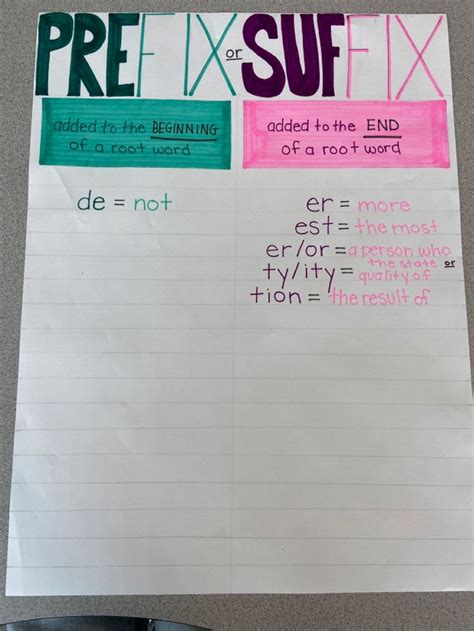 PREFIX or SUFFIX
added to the BEGINNING
of a root word
added to the END
of a root word
de = not
er = more
est = the most
er/or = a person who
ty/ity = the state or
quality of
tion = the result of